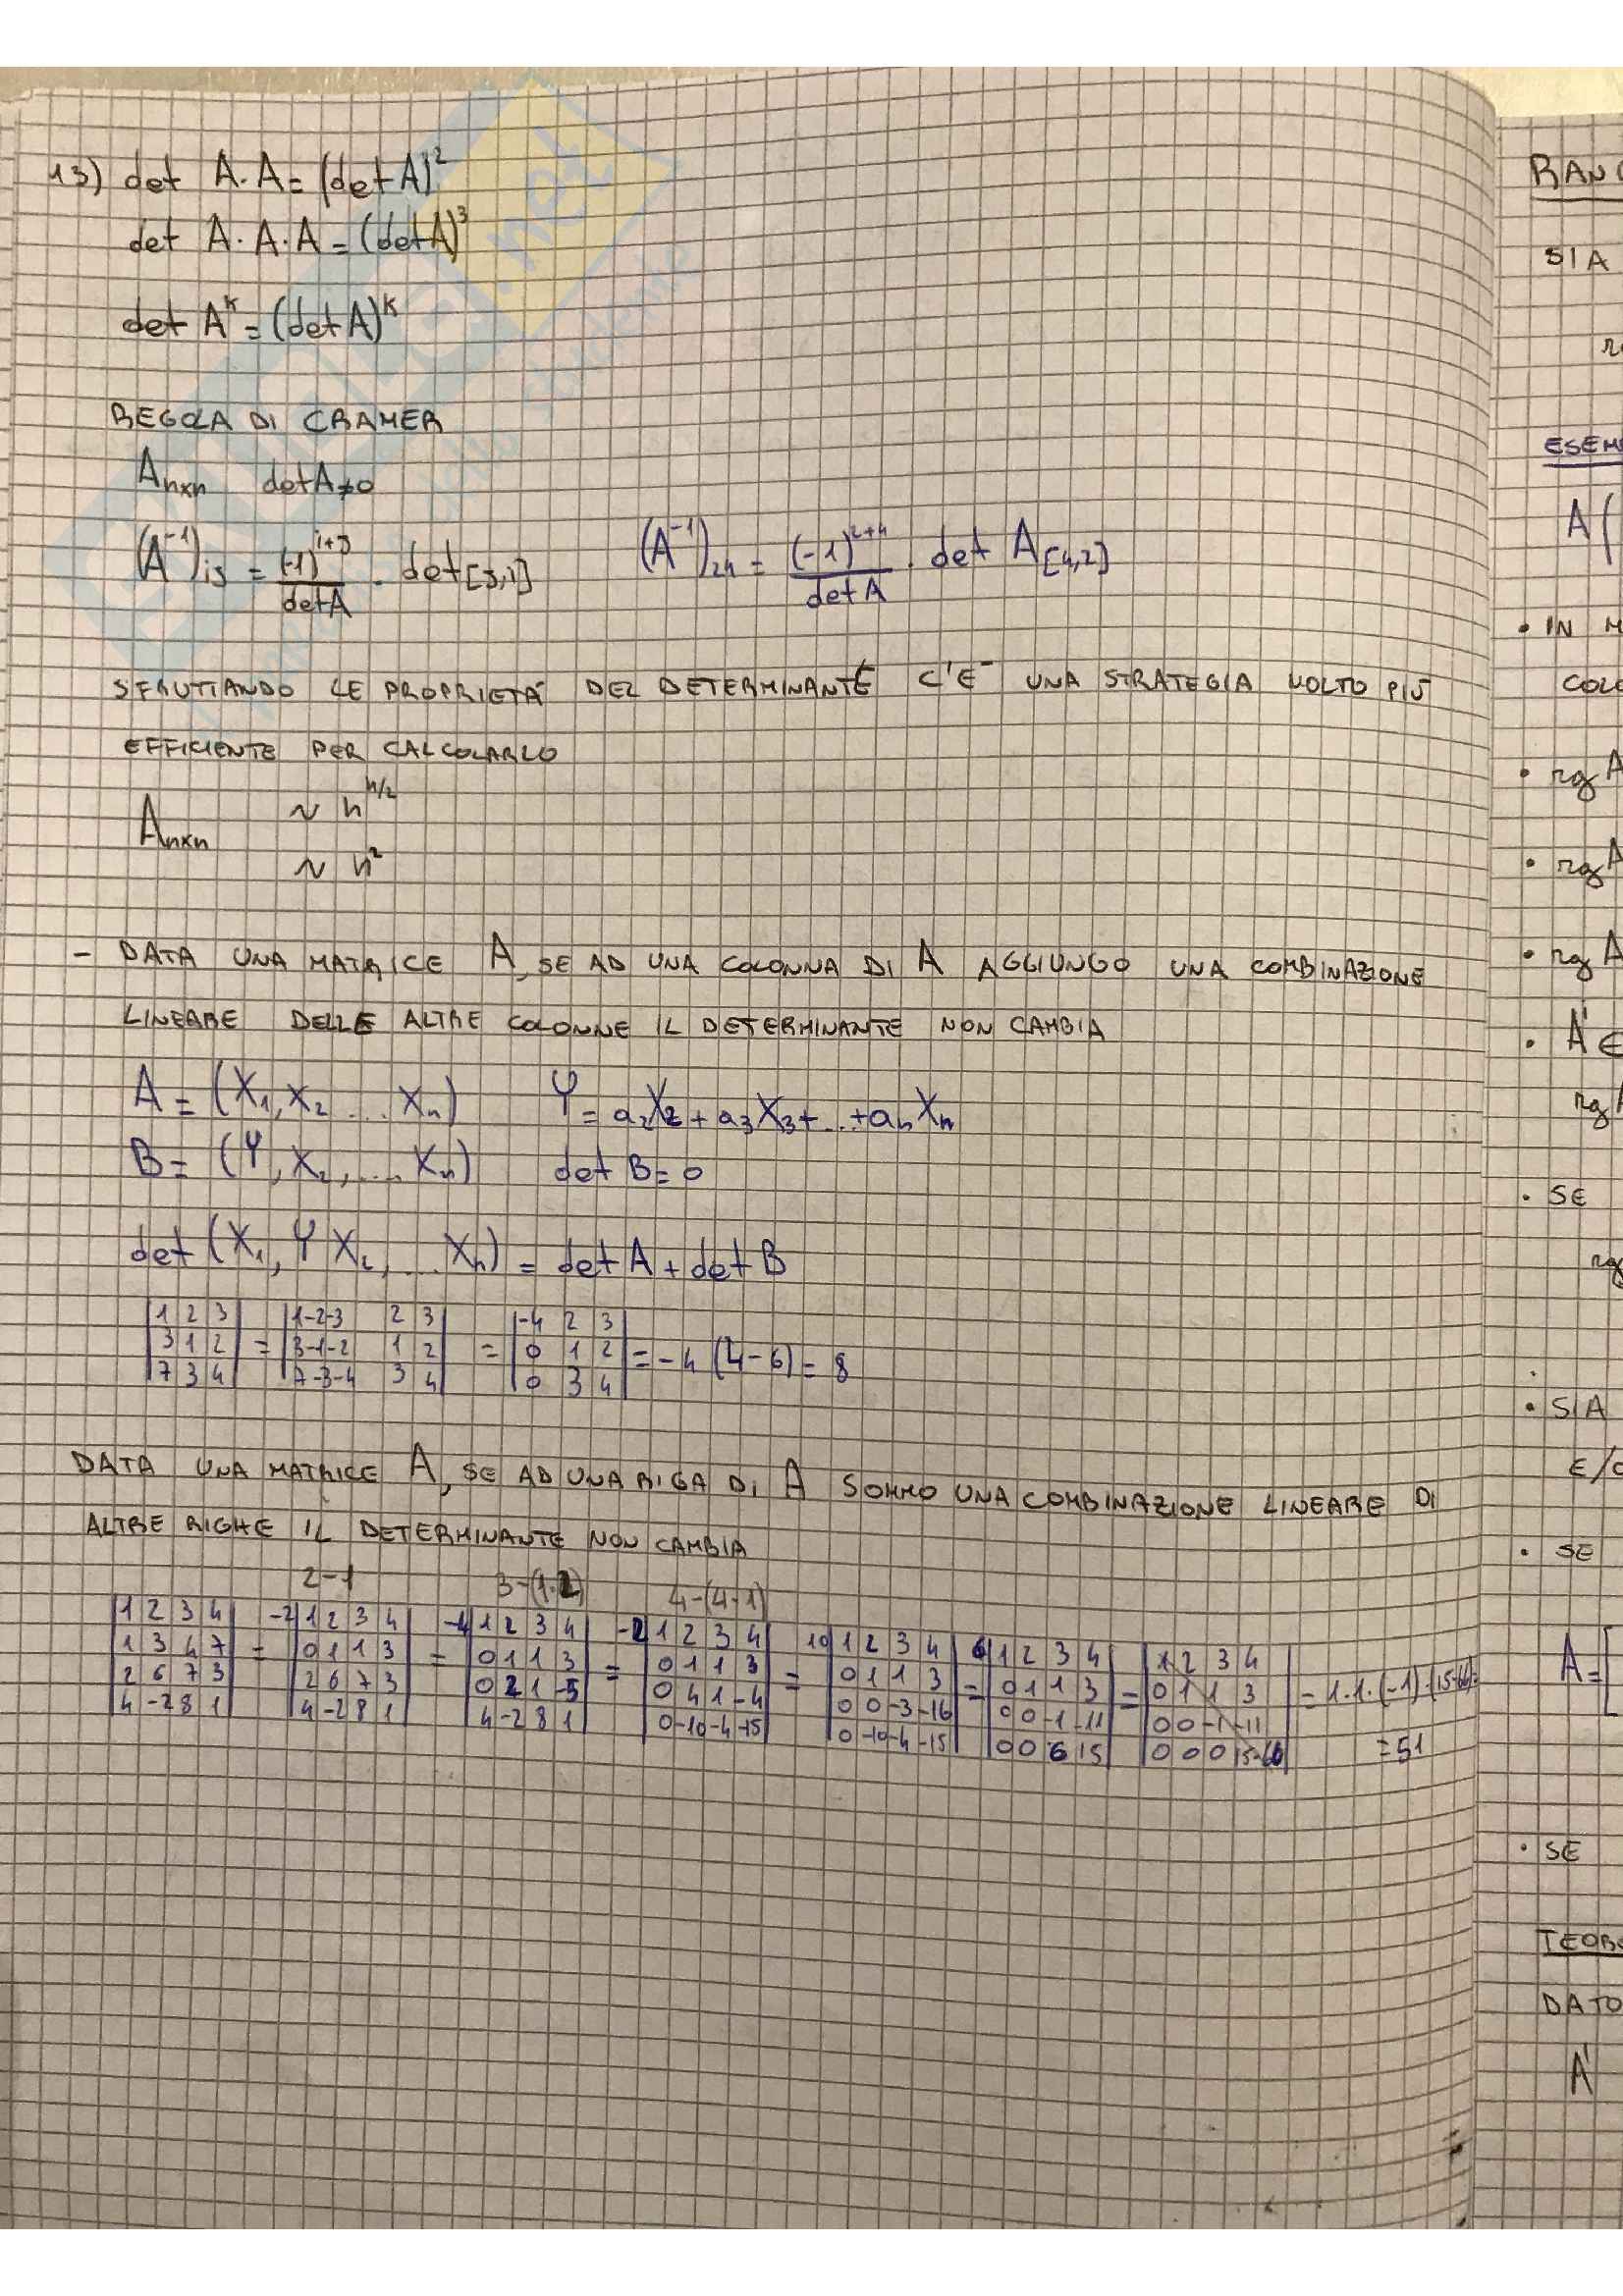 13) det A·A = (det A)²
det A·A·A = (det A)³
det Aᵏ = (det A)ᵏ
REGOLA DI CRAMER
Aₙₓₙ det A≠0
(A⁻¹)ij = (-1)^(i+j)/det A · det[J,i] (A⁻¹)₂₄ = (-1)^(2+4)/det A · det A[4,2]
SFRUTTANDO LE PROPRIETÀ DEL DETERMINANTE C'È UNA STRATEGIA MOLTO PIÙ
EFFICIENTE PER CALCOLARLO
Aₙₓₙ ~ n^(n/2)
~ n²
- DATA UNA MATRICE A, SE AD UNA COLONNA DI A AGGIUNGO UNA COMBINAZIONE
LINEARE DELLE ALTRE COLONNE IL DETERMINANTE NON CAMBIA
A = (X₁, X₂ ... Xₙ) Y = a₂X₂ + a₃X₃ + ... + aₙXₙ
B = (Y, X₂, ... Xₙ) det B = 0
det (X₁, Y X₂, ... Xₙ) = det A + det B
|1 2 3| = |1-2-3 2 3| = |-4 2 3|
|3 1 2| = |3-1-2 1 2| = |0 1 2| = -4 (4-6) = 8
|7 3 4| |7-3-4 3 4| |0 3 4|
DATA UNA MATRICE A, SE AD UNA RIGA DI A SOMMO UNA COMBINAZIONE LINEARE DI
ALTRE RIGHE IL DETERMINANTE NON CAMBIA
2-1 4-(4·1)
|1 2 3 4| -2|1 2 3 4| -4|1 2 3 4| |1 2 3 4| 10|1 2 3 4| 6|1 2 3 4| |1 2 3 4|
|1 3 4 7| = |0 1 1 3| = |0 1 1 3| = |0 1 1 3| = |0 1 1 3| = |0 1 1 3| = |0 1 1 3| = 1·1·(-1)·(15-66)=
|2 6 7 3| |2 6 7 3| |0 2 1 -5| |0 4 1 -4| |0 0 -3 -16| |0 0 -1 -11| |0 0 -1 -11|
|4 -2 8 1| |4 -2 8 1| |4 -2 8 1| |0 -10 -4 -15| |0 -10 -4 -15| |0 0 6 15| |0 0 0 15-66| = 51
SIA
A (
• IN
• rg A
• rg A
• rg A
• SE
• SIA
• SE
A = [
• SE
DATO
A'